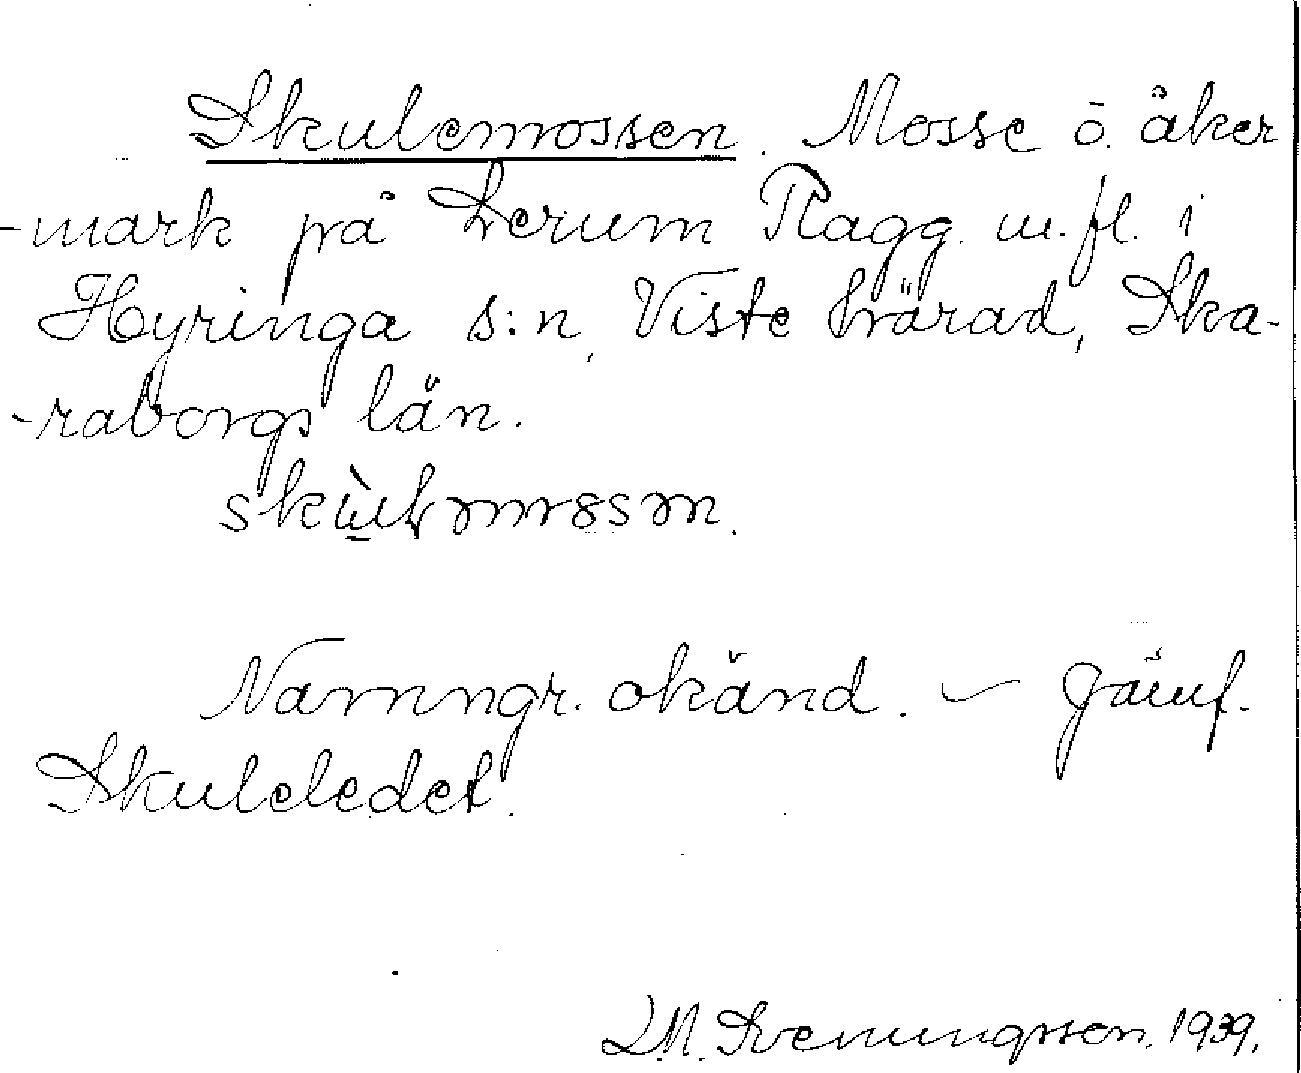 Skulemossen. Mosse o. åker
-mark på Lerum Ragg. m. fl. i
Hyringa s:n, Viste härad, Ska-
-raborgs län.
Namngr. okänd. – Jämf.
Skuleledet.
L.M. Svenungsson. 1939.